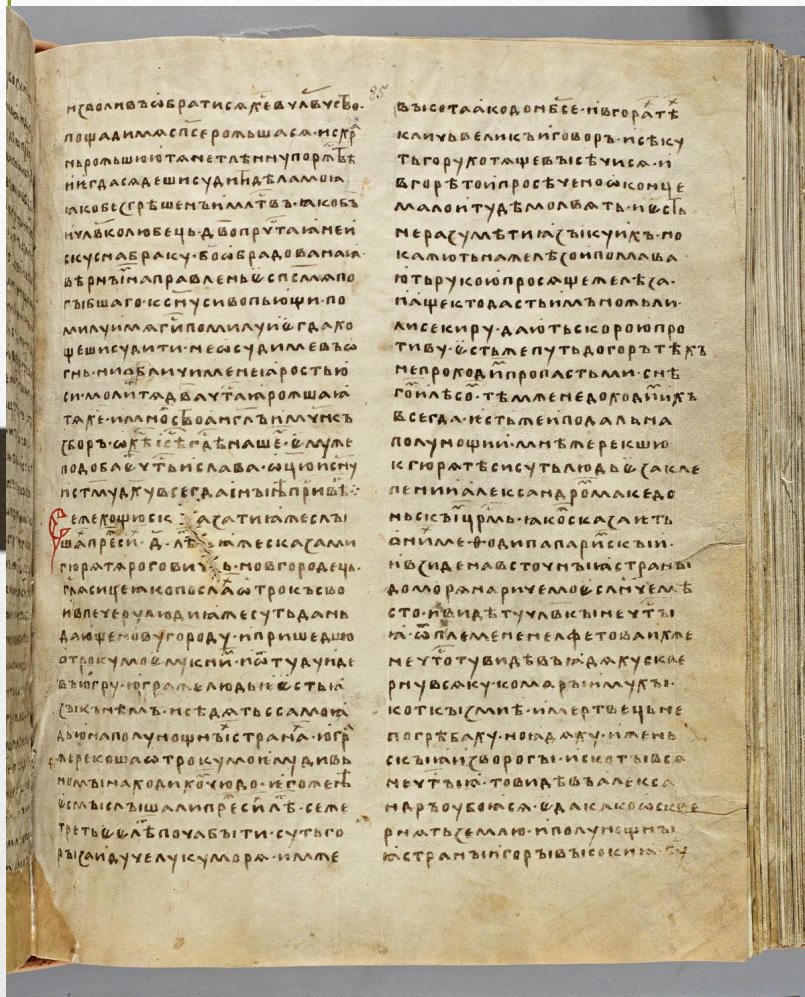 изволивъѡбратисѧжевъчл҃вчсво·
пощадимѧсп҃серожьшасѧ·исхр҃
ньрожьшюютѧнетлѣннупорж҃твѣ
иѥгдасѧдешисудитидѣламоꙗ
ꙗкобезгрѣшенъимлт҃въ·ꙗкоб҃ъ
ичл҃вколюбець·дв҃опрч҃таꙗнеи
скуснабраку·бо҃ѡбрадованаꙗ·
вѣрнымънаправленьѥсп҃смѧпо
гыбшаго·кс҃нусивопьющи·по
милуимѧги҃помилуиѥгдахо
щешисудити·неѡсудименевъѡ
гнь·ниѡбличименеꙗростью
си·молитътѧдв҃ачт҃аꙗрожшаꙗ
тѧхе·имножствоанг҃лъимчн҃къ
зборъ·ѡхѣі҃сѣг҃дѣнашемь·ѥмуже
подобаѥчт҃ьислава·ѡц҃юисн҃у
ист҃мудх҃увсегдаинынѣприсвѣ:·
Сежехощюск азатиꙗжеслы
шахъпреси·д҃·лѣ ꙗжесказами
гюрѧтѧрогови ь·новгородець·
гл҃ѧсицеꙗкопослахъѡтрокъсво
ивпечеруюдиꙗжесутьдань
дающеновугороду·ипришедшю
отрокумоѥмукни·иѿтудуиде
въюгру·югражелюдьѥѥстьꙗ
зыкънѣмъ·исѣдѧтьссамоꙗ
дьюнаполунощныхъстранахъ·югр
жерекошаѡтрокумоѥмудивь
номынаходихомчюдо·ѥгоженѣ
ѥсмыслышалипресихълѣ·сеже
третьѥѥлѣпочабыти·сутьго
рызаидучелукуморѧ·имже
высотаакодонбсе·ивгорахтѣ
кличьвеликъиговоръ·исѣку
тьгорухотѧщевысѣчисѧ·и
вгорѣтоипросѣченоѡконце
малоитудѣмолвѧть·иѥсть
неразумѣтиꙗзыкуихъ·но
кажютьнажелѣзоипомаваа
ютьрукоюпросѧщежелѣза·
ищектодастьимъножьли·
лисекиру·даютьскороюпро
тиву·ѥстьжепутьдогорътѣхъ
непроходимпропастьми·снѣ
гомилѣсо·тѣмженедоходимихъ
всегда·ѥстьжеиподальна
полунощии·мнѣжерекшю
кгюрѧтѣсисутьлюдьѥзакле
пениималександромъмакедо
ньскымцр҃мь·ꙗкосказаѥть
онихъме·ѳодипапарискыи·
ивзиденавсточныꙗстраны
доморѧнаричемоѥслн҃чемѣ
сто·ивидѣтучл҃вкынечт҃ы
ꙗ·ѿплемененелфетоваихже
нечт҃отувидѣвъꙗдѧхускве
рнувсѧку·комарыимухы·
коткызмиѣ·имертвецьне
погрѣбаху·ноꙗдѧху·иженъ
скыꙗизворогы·искотывсѧ
нечт҃ыꙗ·товидѣвъалекса
ндръоубоꙗсѧ·ѥдакакоѡскве
рнѧтьземлю·иполунощны
ꙗстраныигорывысокиꙗ·